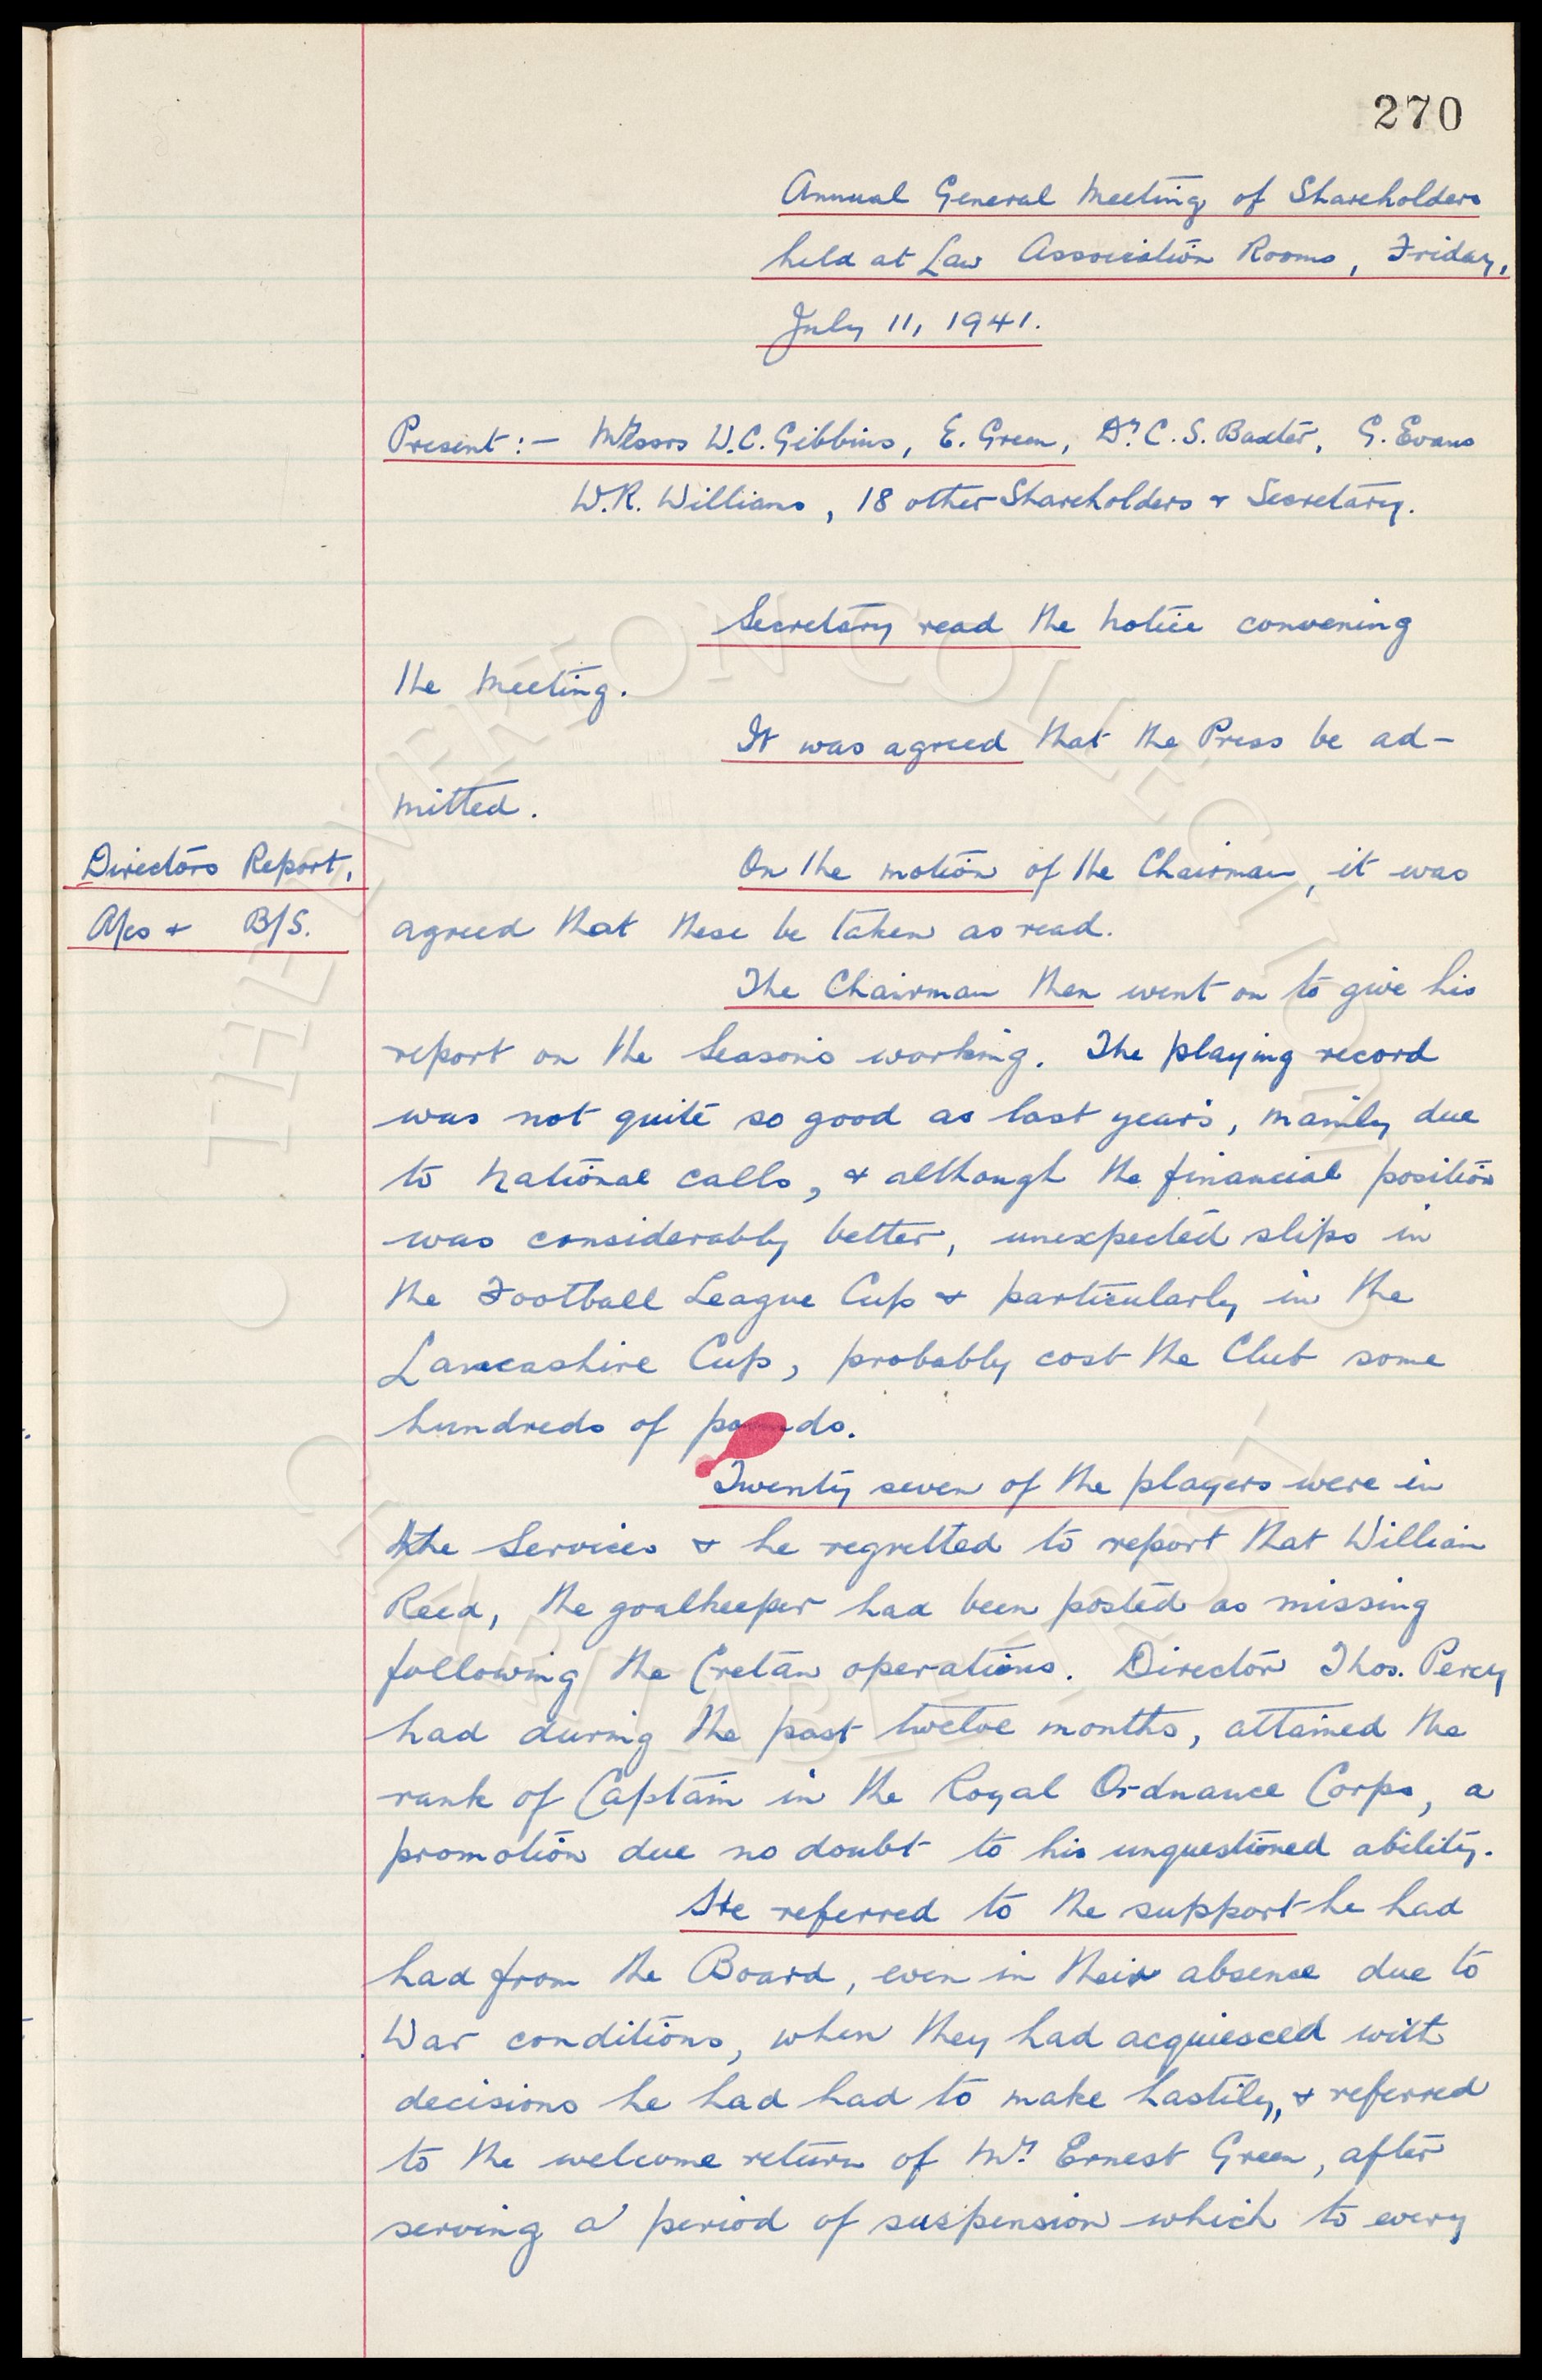 270
Annual General Meeting of Shareholders
held at Law Association Rooms, Friday,
July 11, 1941.
Present:- Messrs W.C. Gibbins, E. Green, Dr. C.S. Baxter, G. Evans
W.R. Williams, 18 other Shareholders & Secretary.
Secretary read the notice convening
the meeting.
It was agreed that the Press be ad-
mitted.
Directors Report,
A/cs & B/S.
On the motion of the Chairman, it was
agreed that these be taken as read.
The Chairman then went on to give his
report on the Season's working. The playing record
was not quite so good as last year's, mainly due
to National calls, & although the financial position
was considerably better, unexpected slips in
the Football League Cup & particularly in the
Lancashire Cup, probably cost the Club some
hundreds of pounds.
Twenty seven of the players were in
the Services & he regretted to report that William
Reed, the goalkeeper had been posted as missing
following the Cretan operations. Director Thos. Percy
had during the past twelve months, attained the
rank of Captain in the Royal Ordnance Corps, a
promotion due no doubt to his unquestioned ability.
He referred to the support he had
had from the Board, even in their absence due to
War conditions, when they had acquiesced with
decisions he had had to make hastily, & referred
to the welcome return of Mr. Ernest Green, after
serving a period of suspension which to every
THE EVERTON COLLECTION
CHARITABLE TRUST